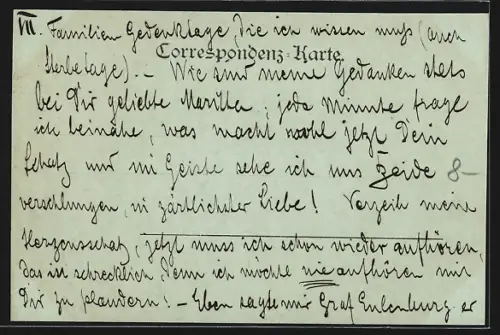 VII. Familien Gedenktage, die ich wissen muß (auch
Correspondenz-Karte
Sterbetage). – Wie sind meine Gedanken stets
bei Dir geliebte; jede Minute frage
ich beinahe, was macht wohl jetzt Dein
Schatz und im Geiste sehe ich uns Beide
8-
verschlungen, in zärtlichster Liebe! Verzeih meine
Herzensschatz, jetzt muss ich schon wieder aufhören,
das ist schrecklich, denn ich möchte nie aufhören mit
Dir zu plaudern! – Eben sagte mir Graf Eulenburg er